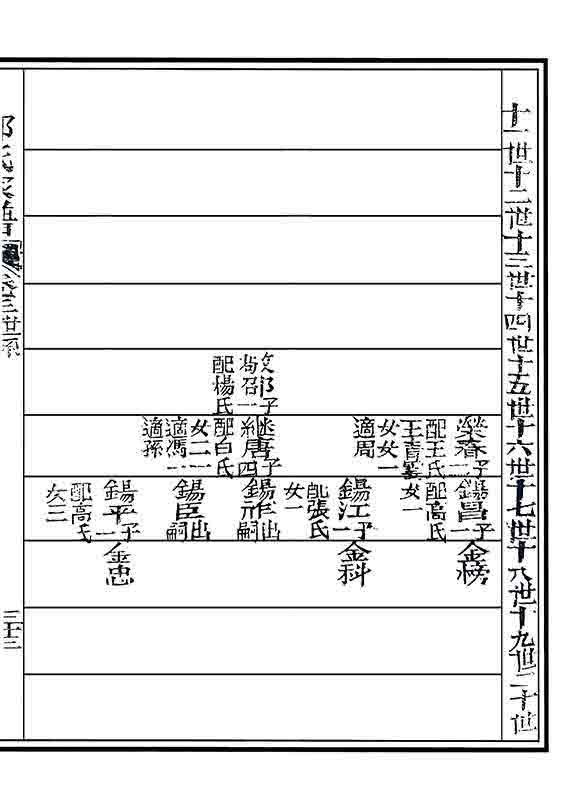 十一世十二世十三世十四世十五世十六世十七世十八世十九世二十世
配楊氏
榮春子二
配王氏
女一
適周
繼唐子四
配白氏
女二一
適馮一
適孫
錫昌子一
配高氏
女一
錫江子一
配張氏
女一
出嗣
錫臣出嗣
錫平子一
配高氏
女三
金榜
金科
金忠
氏家譜
卷三世系